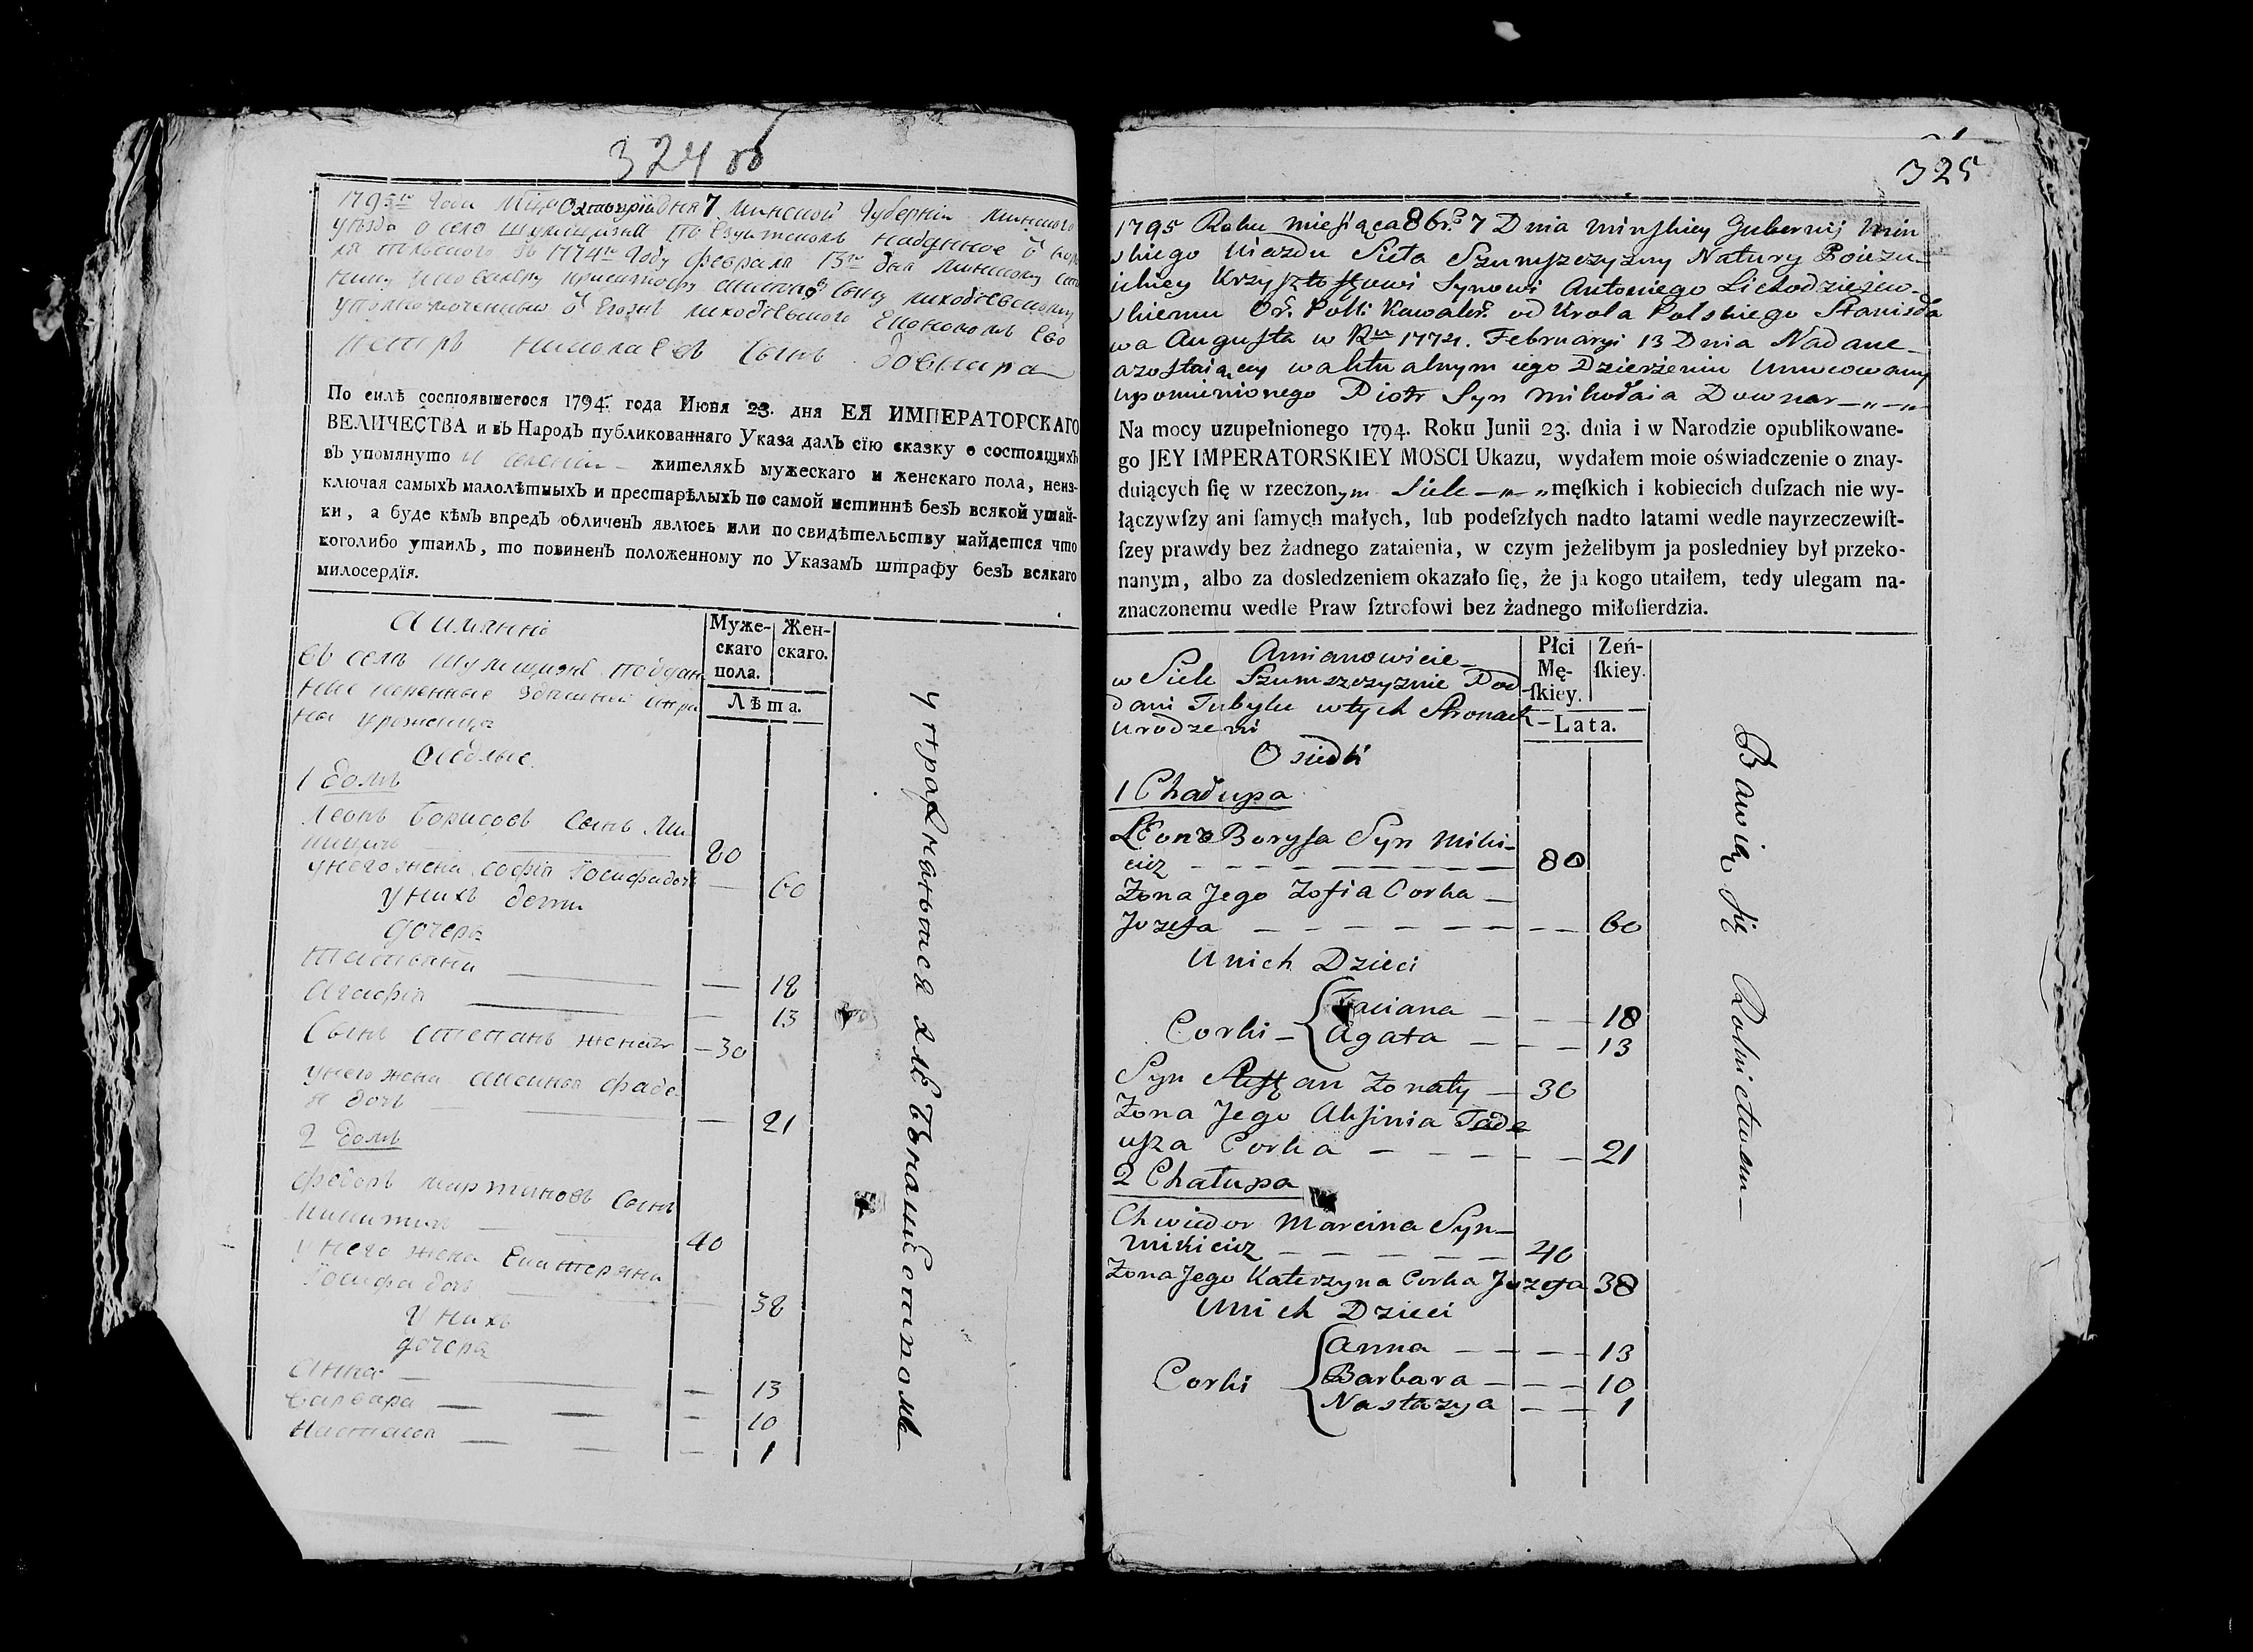 324 об
1795го Года Мца Октября дня 7 Минской Губернии Минского
уезда о селе Шумщизна По Езуитском наданное о Коро
ля польского въ 1774м Году февраля 13го дня Минскому
сыну лиходзѣевскому
уполномоченный
Петръ Николаевъ Сынъ Довнаръ
По силѣ состоявшегося 1794. года Июня 23. дня ЕЯ ИМПЕРАТОРСКАГО
ВЕЛИЧЕСТВА и въ Народъ публикованнаго Указа далъ сїю сказку о состоящихъ
въ упомянуто м селении – жителяхъ мужескаго и женскаго пола, неиз-
ключая самыхъ малолѣтныхъ и престарѣлыхъ по самой истиннѣ безъ всякой утай-
ки, а буде кѣмъ впредь обличенъ явлюсь или по свидѣтельству найдется что
коголибо утаилъ, то повиненъ положенному по Указамъ штрафу безъ всякаго
милосердїя.
А имянно
Муже-
скаго
пола.
Жен-
скаго.
Лѣта.
въ селѣ Шумщизнѣ поддан
ные коренные здешней сторо
ны уроженцы
Оседлые.
1 домъ
Леонъ Борисовъ Сынъ Ми
кицичъ — 80
у него жена Софія Іосифа дочь — 60
у нихъ дети
дочери
Татьяна — 18
Агафія — 13
Сынъ Степанъ женатъ — 30
у него жена Аксинья Фаде
я дочь — 21
2 домъ
Федоръ Мартиновъ Сынъ
Микитичъ — 40
у него жена Екатерина
Іосифа дочь — 38
у нихъ
дочери
Анна — 13
Варвара — 10
Настасія — 1
упражняются хлѣбопашествомъ
325
1795 Roku miesiąca 8br. 7 Dnia Minskiey Gubernij Min
skiego Uiazdu Sieła Szumszczyzny Natury Poiezu-
ickiey Krzysztofowi Synowi Antoniego Lichodziejew-
skiemu Or. Polk: Kawaler. od Krola Polskiego Stanisła
wa Augusta w Rku 1774. Februaryi 13 Dnia Nadane-
azostaiącey w aktualnym iego Dzierżeniu Umocowany
upomienionego Piotr Syn Mikołaia Downar — „ — „
Na mocy uzupełnionego 1794. Roku Junii 23. dnia i w Narodzie opublikowane-
go JEY IMPERATORSKIEY MOSCI Ukazu, wydałem moie oświadczenie o znay-
duiących ſię w rzeczonym Siele — „ — „ męſkich i kobiecich duſzach nie wy-
łączywſzy ani ſamych małych, lub podeſzłych nadto latami wedle nayrzeczewiſt-
ſzey prawdy bez żadnego zataienia, w czym jeżelibym ja posledniey był przeko-
nanym, albo za dosledzeniem okazało ſię, że ja kogo utaiłem, tedy ulegam na-
znaczonemu wedle Praw ſztrofowi bez żadnego miłoſierdzia.
Amianowicie
Płci
Mę-
ſkiey.
Zeń-
ſkiey.
Lata.
w Siele Szumszczyznie Pod
dani Tubylu wtych Stronach
urodzeni
Osiedli
1 Chałupa
LEon Borysa Syn Miki-
cicz — 80
Żona Jego Zofia Corka
Jozefa — 60
Unich Dzieci
Corki – Taciana — 18
Agata — 13
Syn Stefan Żonaty — 30
Żona Jego Aksinia Tade
usza Corka — 21
2 Chałupa
Chwiedor Marcina Syn
Mikicicz — 40
Żona Jego Katerzyna Corka Jozefa 38
Unich Dzieci
Corki Anna — 13
Barbara — 10
Nastazya — 1
Bawią się Rolnictwem